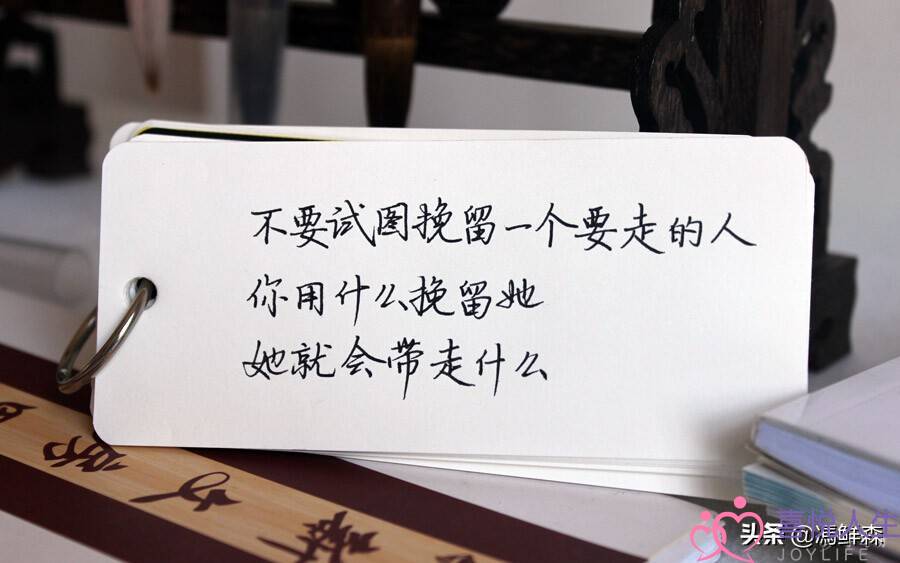 不要试图挽留一个要走的人
你用什么挽留她
她就会带走什么
头条 @馮鲜森
喜悦人生
JOYLIFE